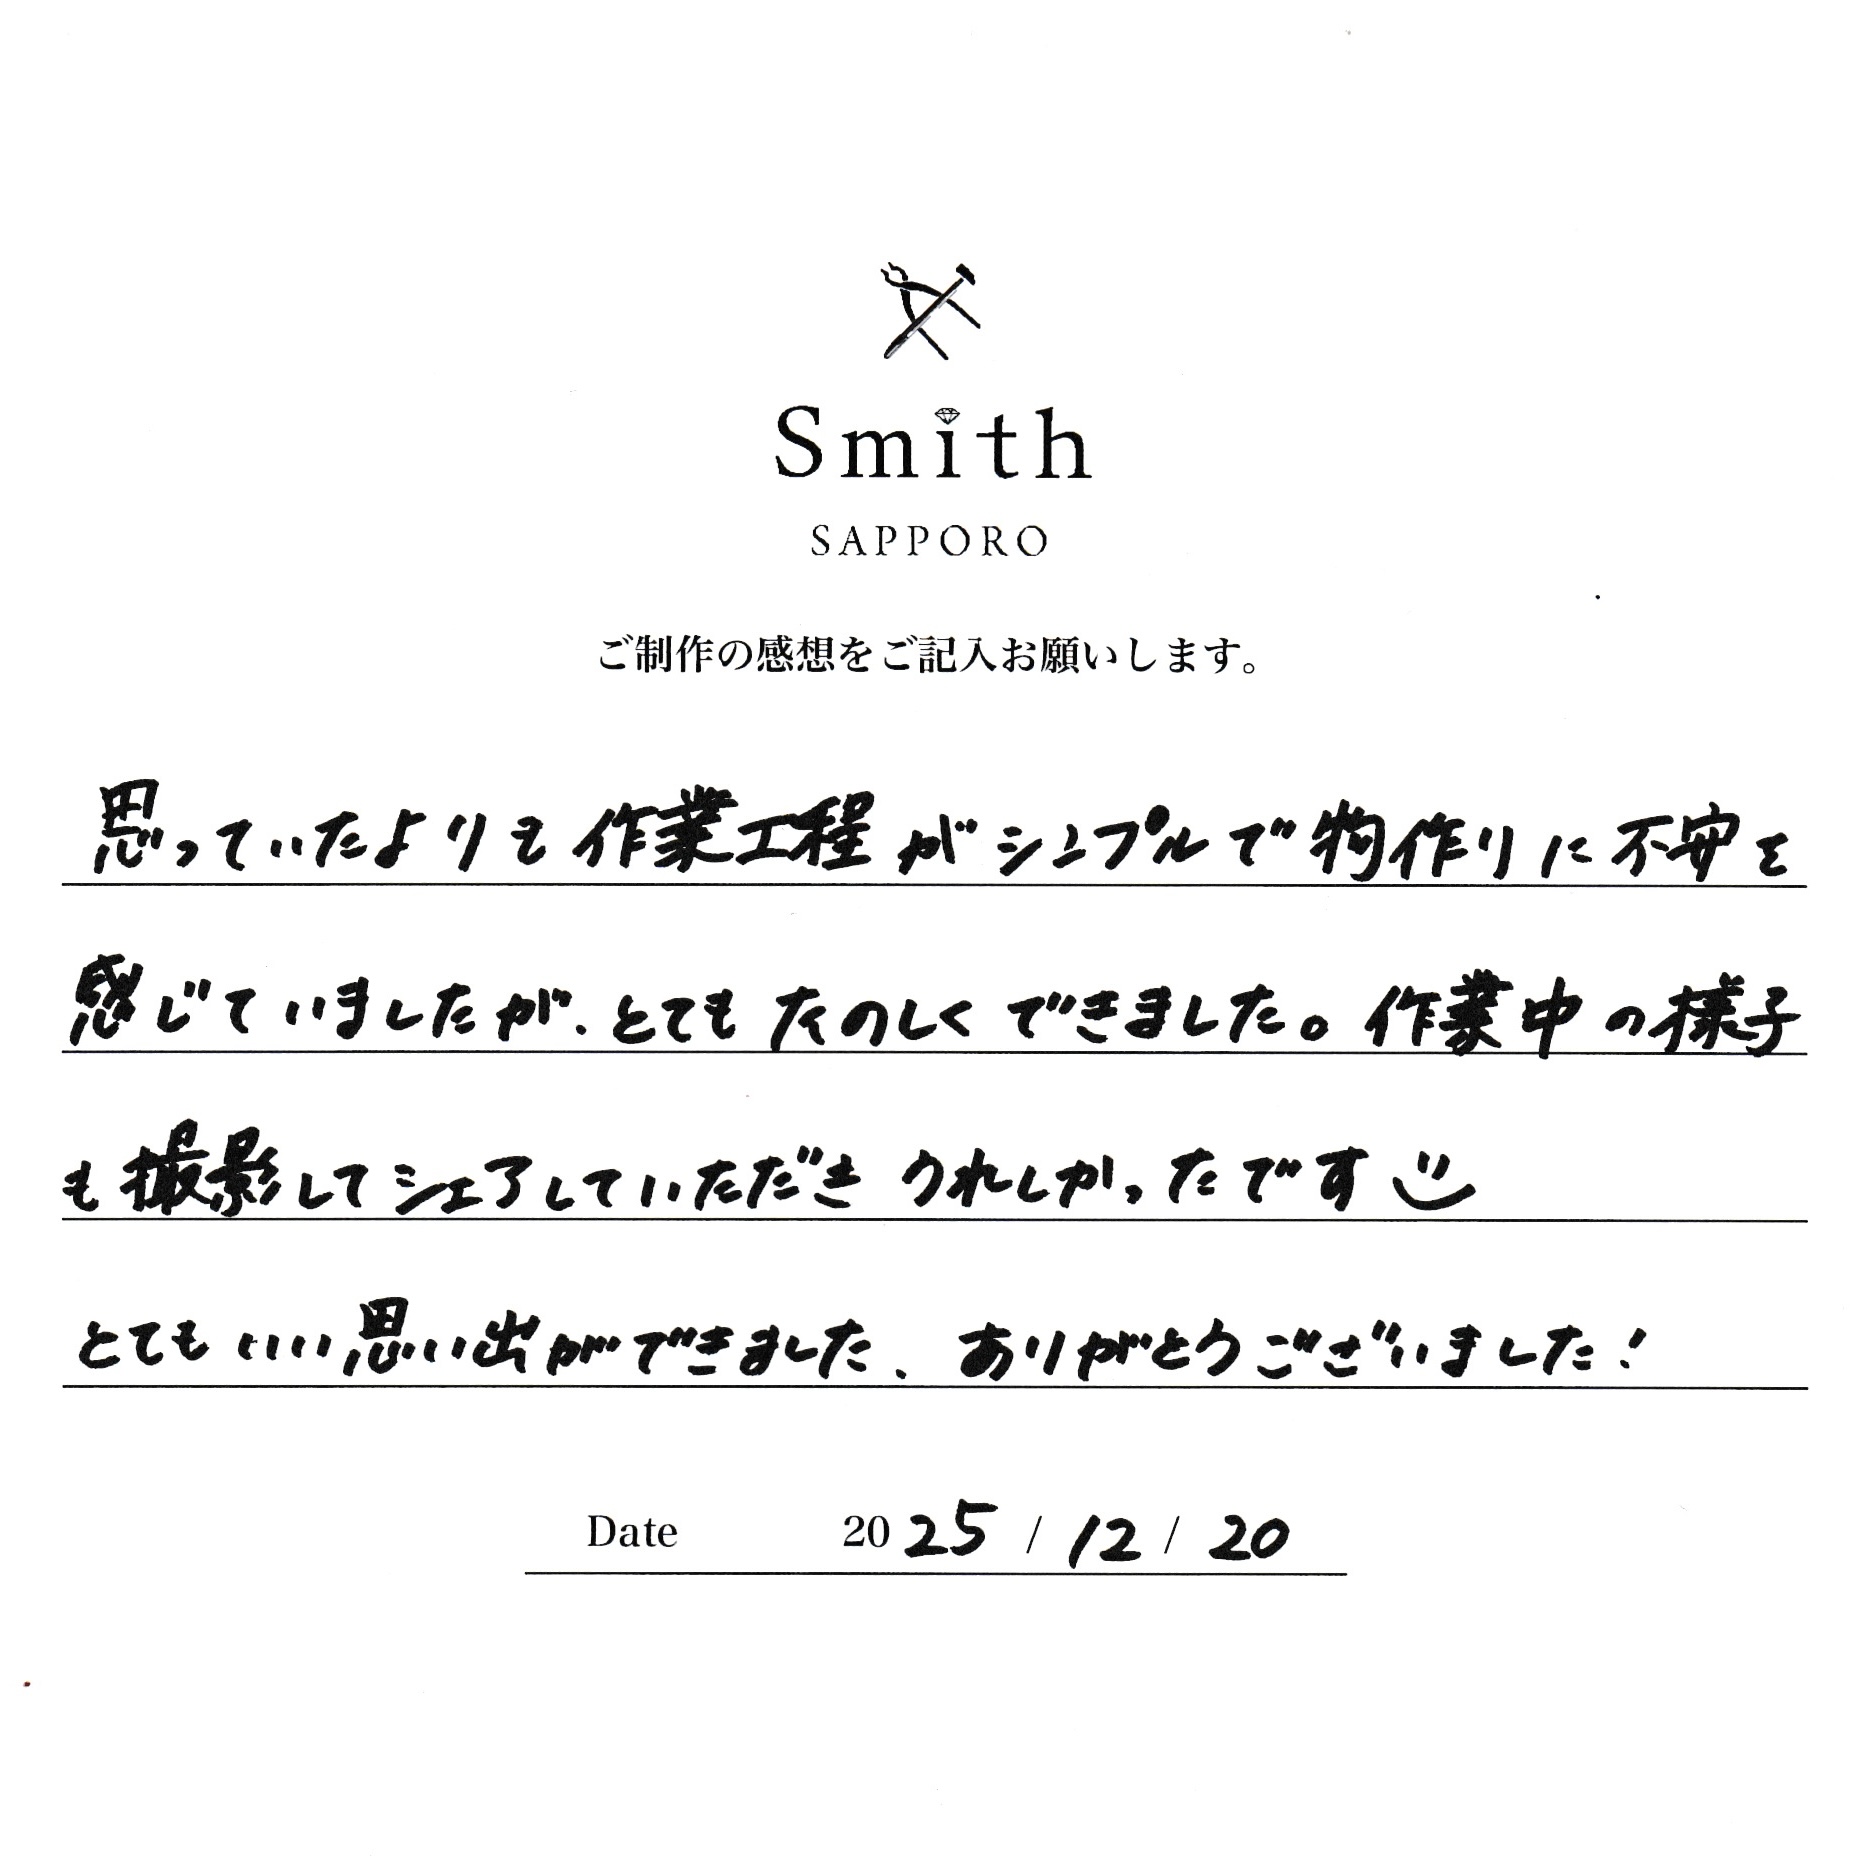 Smith
SAPPORO
ご制作の感想をご記入お願いします。
思っていたよりも作業工程がシンプルで物作りに不安を
感じていましたが、とてもたのしくできました。作業中の様子
も撮影してシェアしていただきうれしかったです
とてもいい思い出ができました、ありがとうございました!
Date 2025 / 12 / 20